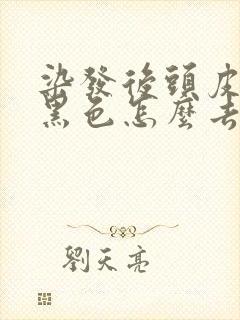 染發後頭皮
黑色怎麼去
劉天亮